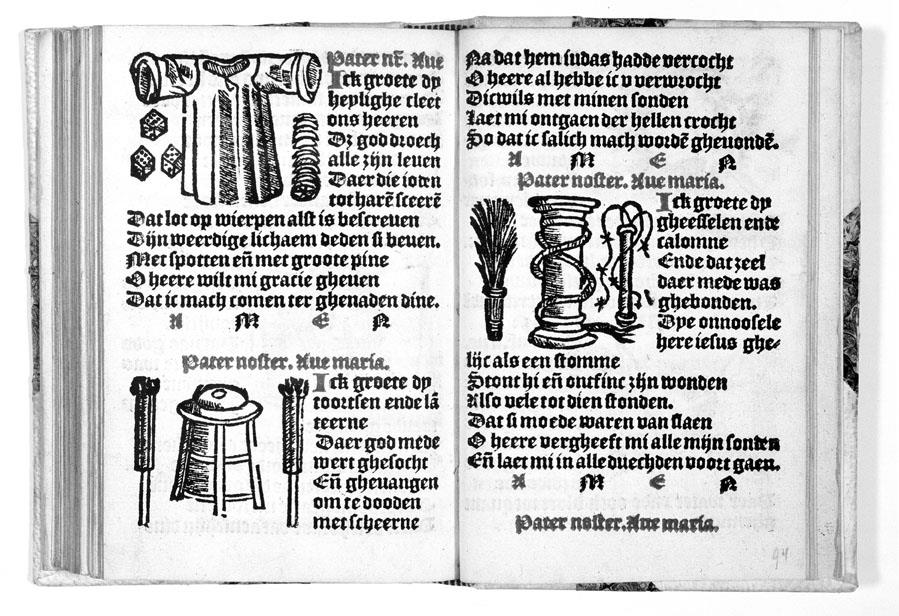 Pater nr̄. Aue
Ick groete dy
heylighe cleet
ons heeren
Dz god droech
alle zijn leuen
Daer die ioden
tot harē sceerē
Dat lot op wierpen alst is bescreuen
Dijn weerdige lichaem deden si beuen.
Met spotten eñ met groote pine
O heere wilt mi gracie gheuen
Dat ic mach comen ter ghenaden dine.
A M E N
Pater noster. Aue maria.
Ick groete dy
toortsen ende lā
teerne
Daer god mede
wert ghesocht
Eñ gheuangen
om te dooden
met scheerne
Na dat hem iudas hadde vercocht
O heere al hebbe ic v verwrocht
Dicwils met minen sonden
Laet mi ontgaen der hellen crocht
So dat ic salich mach wordē gheuondē.
A M E N
Pater noster. Aue maria.
Ick groete dy
gheesselen ende
calomne
Ende dat zeel
daer mede was
ghebonden.
Dye onnoosele
here iesus ghe-
lijc als een stomme
Stont hi eñ ontfinc zijn wonden
Also vele tot dien stonden.
Dat si moede waren van slaen
O heere vergheeft mi alle mijn sonden
Eñ laet mi in alle duechden voort gaen.
A M E N
Pater noster. Aue maria.
94